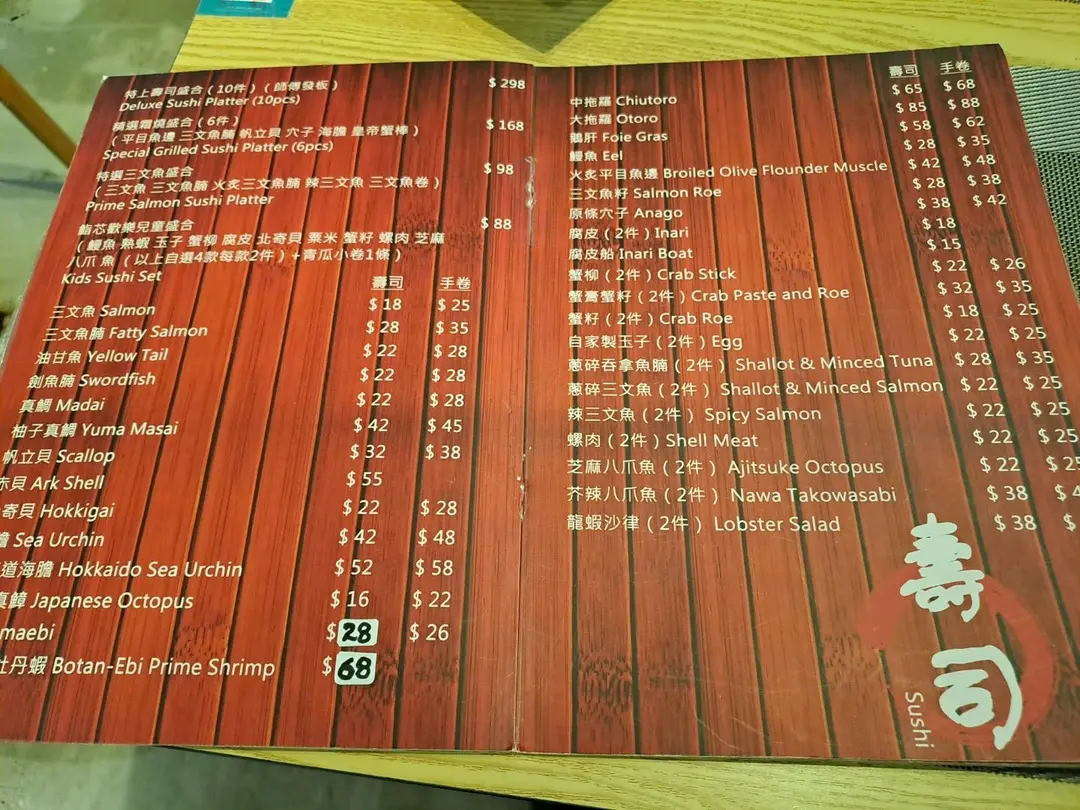 特上壽司盛合(10件)(師傅發板) $ 298
Deluxe Sushi Platter (10pcs)
精選霜燒盛合(6件) $ 168
(平目魚邊 三文魚腩 帆立貝 穴子 海膽 皇帝蟹棒)
Special Grilled Sushi Platter (6pcs)
特選三文魚盛合 $ 98
(三文魚 三文魚腩 火炙三文魚腩 辣三文魚 三文魚卷)
Prime Salmon Sushi Platter
鮨芯歡樂兒童盛合 $ 88
(鰻魚 熟蝦 玉子 蟹柳 腐皮 北寄貝 粟米 蟹籽 螺肉 芝麻
八爪魚 (以上自選4款每款2件)+青瓜小卷1條)
Kids Sushi Set
壽司 手卷
三文魚 Salmon $ 18 $ 25
三文魚腩 Fatty Salmon $ 28 $ 35
油甘魚 Yellow Tail $ 22 $ 28
劍魚腩 Swordfish $ 22 $ 28
真鯛 Madai $ 22 $ 28
柚子真鯛 Yuma Masai $ 42 $ 45
帆立貝 Scallop $ 32 $ 38
赤貝 Ark Shell $ 55
寄貝 Hokkigai $ 22 $ 28
膽 Sea Urchin $ 42 $ 48
道海膽 Hokkaido Sea Urchin $ 52 $ 58
真鱆 Japanese Octopus $ 16 $ 22
maebi $ 28 $ 26
牡丹蝦 Botan-Ebi Prime Shrimp $ 68
壽司 手卷
中拖羅 Chiutoro $ 65 $ 68
大拖羅 Otoro $ 85 $ 88
鵝肝 Foie Gras $ 58 $ 62
鰻魚 Eel $ 28 $ 35
火炙平目魚邊 Broiled Olive Flounder Muscle $ 42 $ 48
三文魚籽 Salmon Roe $ 28 $ 38
原條穴子 Anago $ 38 $ 42
腐皮(2件) Inari $ 18
腐皮船 Inari Boat $ 15
蟹柳(2件) Crab Stick $ 22 $ 26
蟹膏蟹籽(2件) Crab Paste and Roe $ 32 $ 35
蟹籽(2件) Crab Roe $ 18 $ 25
自家製玉子(2件) Egg $ 22 $ 25
蔥碎吞拿魚腩(2件) Shallot & Minced Tuna $ 28 $ 35
蔥碎三文魚(2件) Shallot & Minced Salmon $ 22 $ 25
辣三文魚(2件) Spicy Salmon $ 22 $ 25
螺肉(2件) Shell Meat $ 22 $ 25
芝麻八爪魚(2件) Ajitsuke Octopus $ 22 $ 25
芥辣八爪魚(2件) Nawa Takowasabi $ 38 $ 4
龍蝦沙律(2件) Lobster Salad $ 38 $
壽司
Sushi